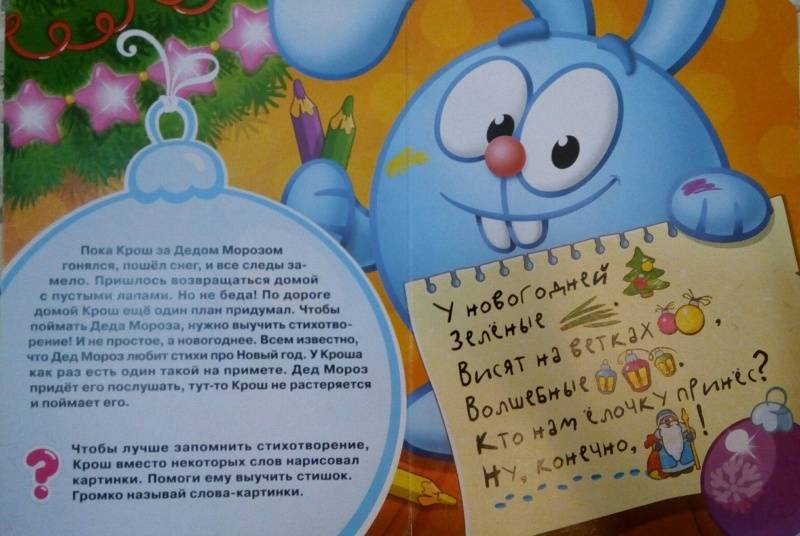 Пока Крош за Дедом Морозом
гонялся, пошёл снег, и все следы за-
мело. Пришлось возвращаться домой
с пустыми лапами. Но не беда! По дороге
домой Крош ещё один план придумал. Чтобы
поймать Деда Мороза, нужно выучить стихотво-
рение! И не простое, а новогоднее. Всем известно,
что Дед Мороз любит стихи про Новый год. У Кроша
как раз есть один такой на примете. Дед Мороз
придёт его послушать, тут-то Крош не растеряется
и поймает его.
?
Чтобы лучше запомнить стихотворение,
Крош вместо некоторых слов нарисовал
картинки. Помоги ему выучить стишок.
Громко называй слова-картинки.
У новогодней
Зелёные .
Висят на ветках ,
Волшебные .
Кто нам ёлочку принёс?
Ну, конечно, !